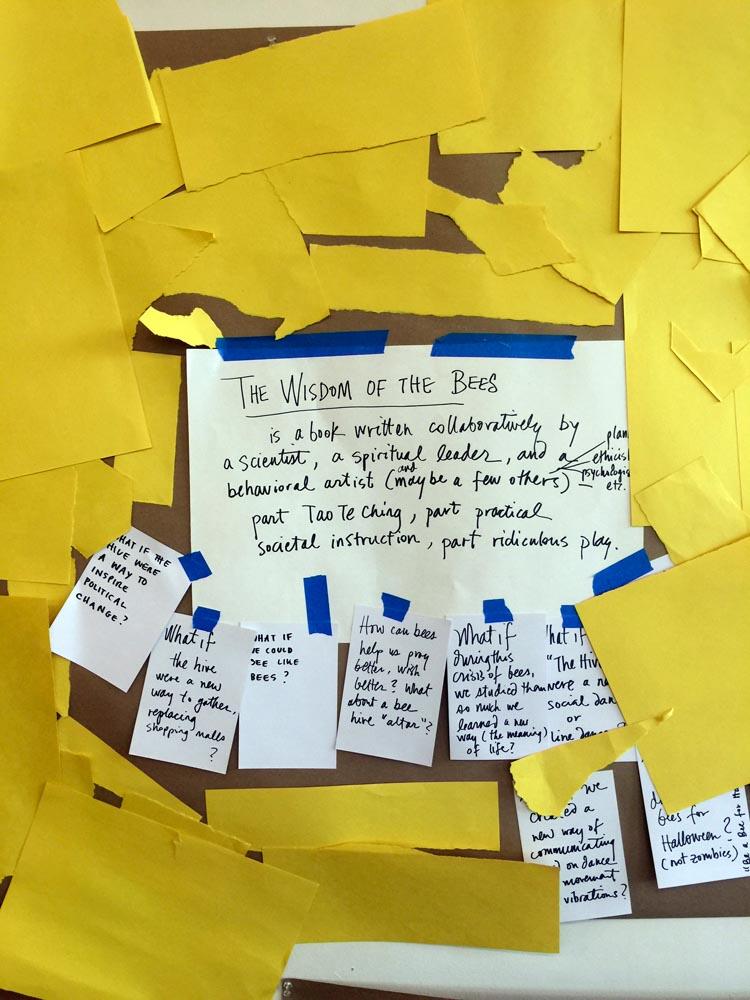 THE WISDOM OF THE BEES
is a book written collaboratively by
a scientist, a spiritual leader, and a
behavioral artist (and maybe a few others) —
plan
ethicis
psychologis
etc.
part Tao Te Ching, part practical
societal instruction, part ridiculous play.
HAT IF THE
HIVE WERE
A WAY TO
INSPIRE
POLITICAL
CHANGE?
What if
the hive
were a new
way to gather,
replacing
shopping malls
?
HAT IF
E COULD
SEE LIKE
BEES?
How can bees
help us pray
better, wish
better? What
about a bee
hive "altar"?
What if
during this
crisis of bees,
we studied them
so much we
learned a new
way (the meaning)
of life?
hat if
"The Hiv
were a ne
social dan
or
Line dance
we
created a
new way of
communicating
on dance
movement
vibrations?
bees for
Halloween?
(not zombies)